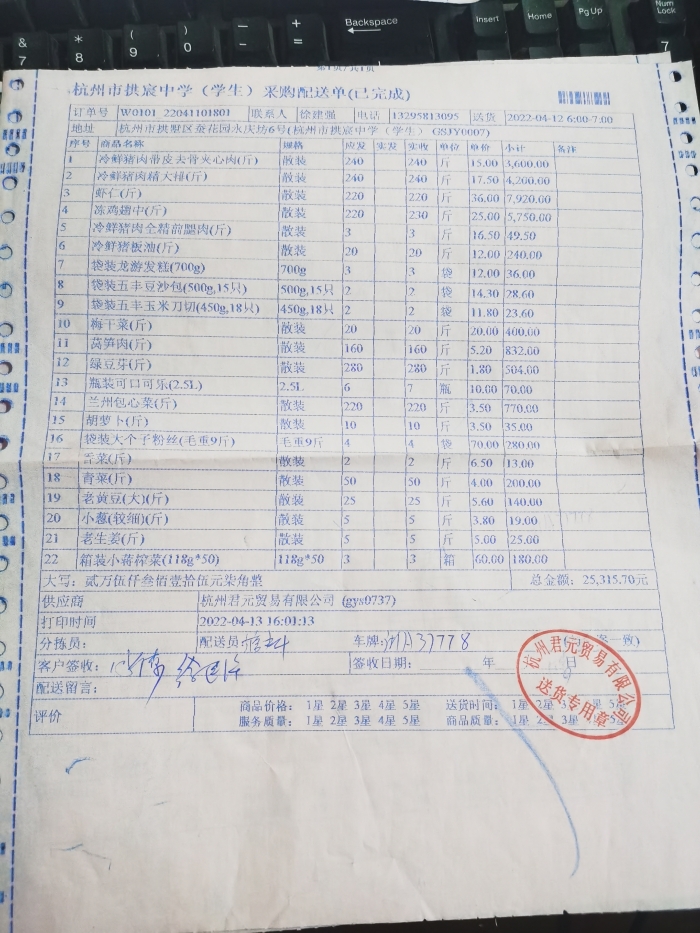 &
7
*
8
(
9
)
0
-
+
=
Backspace
Insert
Home
PgUp
Num
Lock
7
第1页/共1页
杭州市拱宸中学（学生）采购配送单(已完成)
订单号 W0101 22041101801 联系人 徐建强 电话 13295813095 送货 2022-04-12 6:00-7:00
地址 杭州市拱墅区蚕花园永庆坊6号(杭州市拱宸中学（学生） GSJY0007)
序号 商品名称 规格 应发 实发 实收 单位 单价 小计 备注
1 冷鲜猪肉带皮去骨夹心肉(斤) 散装 240 240 斤 15.00 3,600.00
2 冷鲜猪肉精大排(斤) 散装 240 240 斤 17.50 4,200.00
3 虾仁(斤) 散装 220 220 斤 36.00 7,920.00
4 冻鸡翅中(斤) 散装 220 230 斤 25.00 5,750.00
5 冷鲜猪肉全精前腿肉(斤) 散装 3 3 斤 16.50 49.50
6 冷鲜猪板油(斤) 散装 20 20 斤 12.00 240.00
7 袋装龙游发糕(700g) 700g 3 3 袋 12.00 36.00
8 袋装五丰豆沙包(500g,15只) 500g,15只 2 2 袋 14.30 28.60
9 袋装五丰玉米刀切(450g,18只) 450g,18只 2 2 袋 11.80 23.60
10 梅干菜(斤) 散装 20 20 斤 20.00 400.00
11 莴笋肉(斤) 散装 160 160 斤 5.20 832.00
12 绿豆芽(斤) 散装 280 280 斤 1.80 504.00
13 瓶装可口可乐(2.5L) 2.5L 6 7 瓶 10.00 70.00
14 兰州包心菜(斤) 散装 220 220 斤 3.50 770.00
15 胡萝卜(斤) 散装 10 10 斤 3.50 35.00
16 袋装大个子粉丝(毛重9斤) 毛重9斤 4 4 袋 70.00 280.00
17 香菜(斤) 散装 2 2 斤 6.50 13.00
18 青菜(斤) 散装 50 50 斤 4.00 200.00
19 老黄豆(大)(斤) 散装 25 25 斤 5.60 140.00
20 小葱(较细)(斤) 散装 5 5 斤 3.80 19.00
21 老生姜(斤) 散装 5 5 斤 5.00 25.00
22 箱装小蒋榨菜(118g*50) 118g*50 3 3 箱 60.00 180.00
大写：贰万伍仟叁佰壹拾伍元柒角整 总金额：25,315.70元
供应商 杭州君元贸易有限公司 (gys0737)
打印时间 2022-04-13 16:01:13
分拣员： 配送员： 车牌：浙A37778 一致)
客户签收： 签收日期： 年 日
配送留言：
评价 商品价格： 1星 2星 3星 4星 5星 送货时间： 1星 2星 3星
服务质量： 1星 2星 3星 4星 5星 商品质量： 1星 3星
杭州君元贸易有限公司
送货专用章